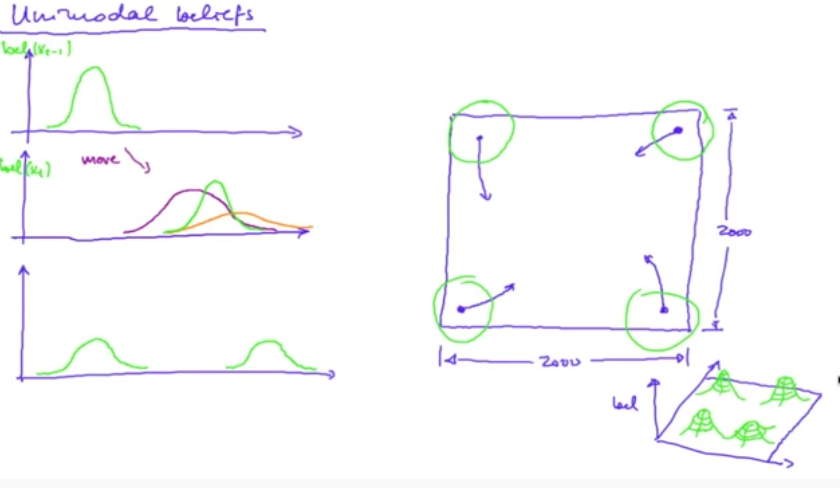 Unimodal beliefs
bel(x_{t-1})
bel(x_t)
move
2000
2000
bel